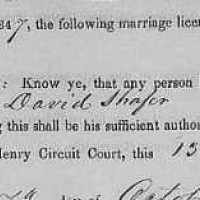 847, the following marriage licen
: Know ye, that any person
David Shafer
g this shall be his sufficient author
Henry Circuit Court, this 13